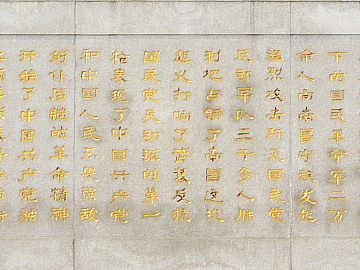 下的国民革命军二万
余人向南昌守敌发起
猛烈攻击歼灭国民党
反动军队三千多人胜
利地占领了南昌这次
起义打响了武装反抗
国民党反动派的第一
枪表现了中国共产党
和中国人民不畏强敌
前仆后继的革命精神
开始了中国共产党独